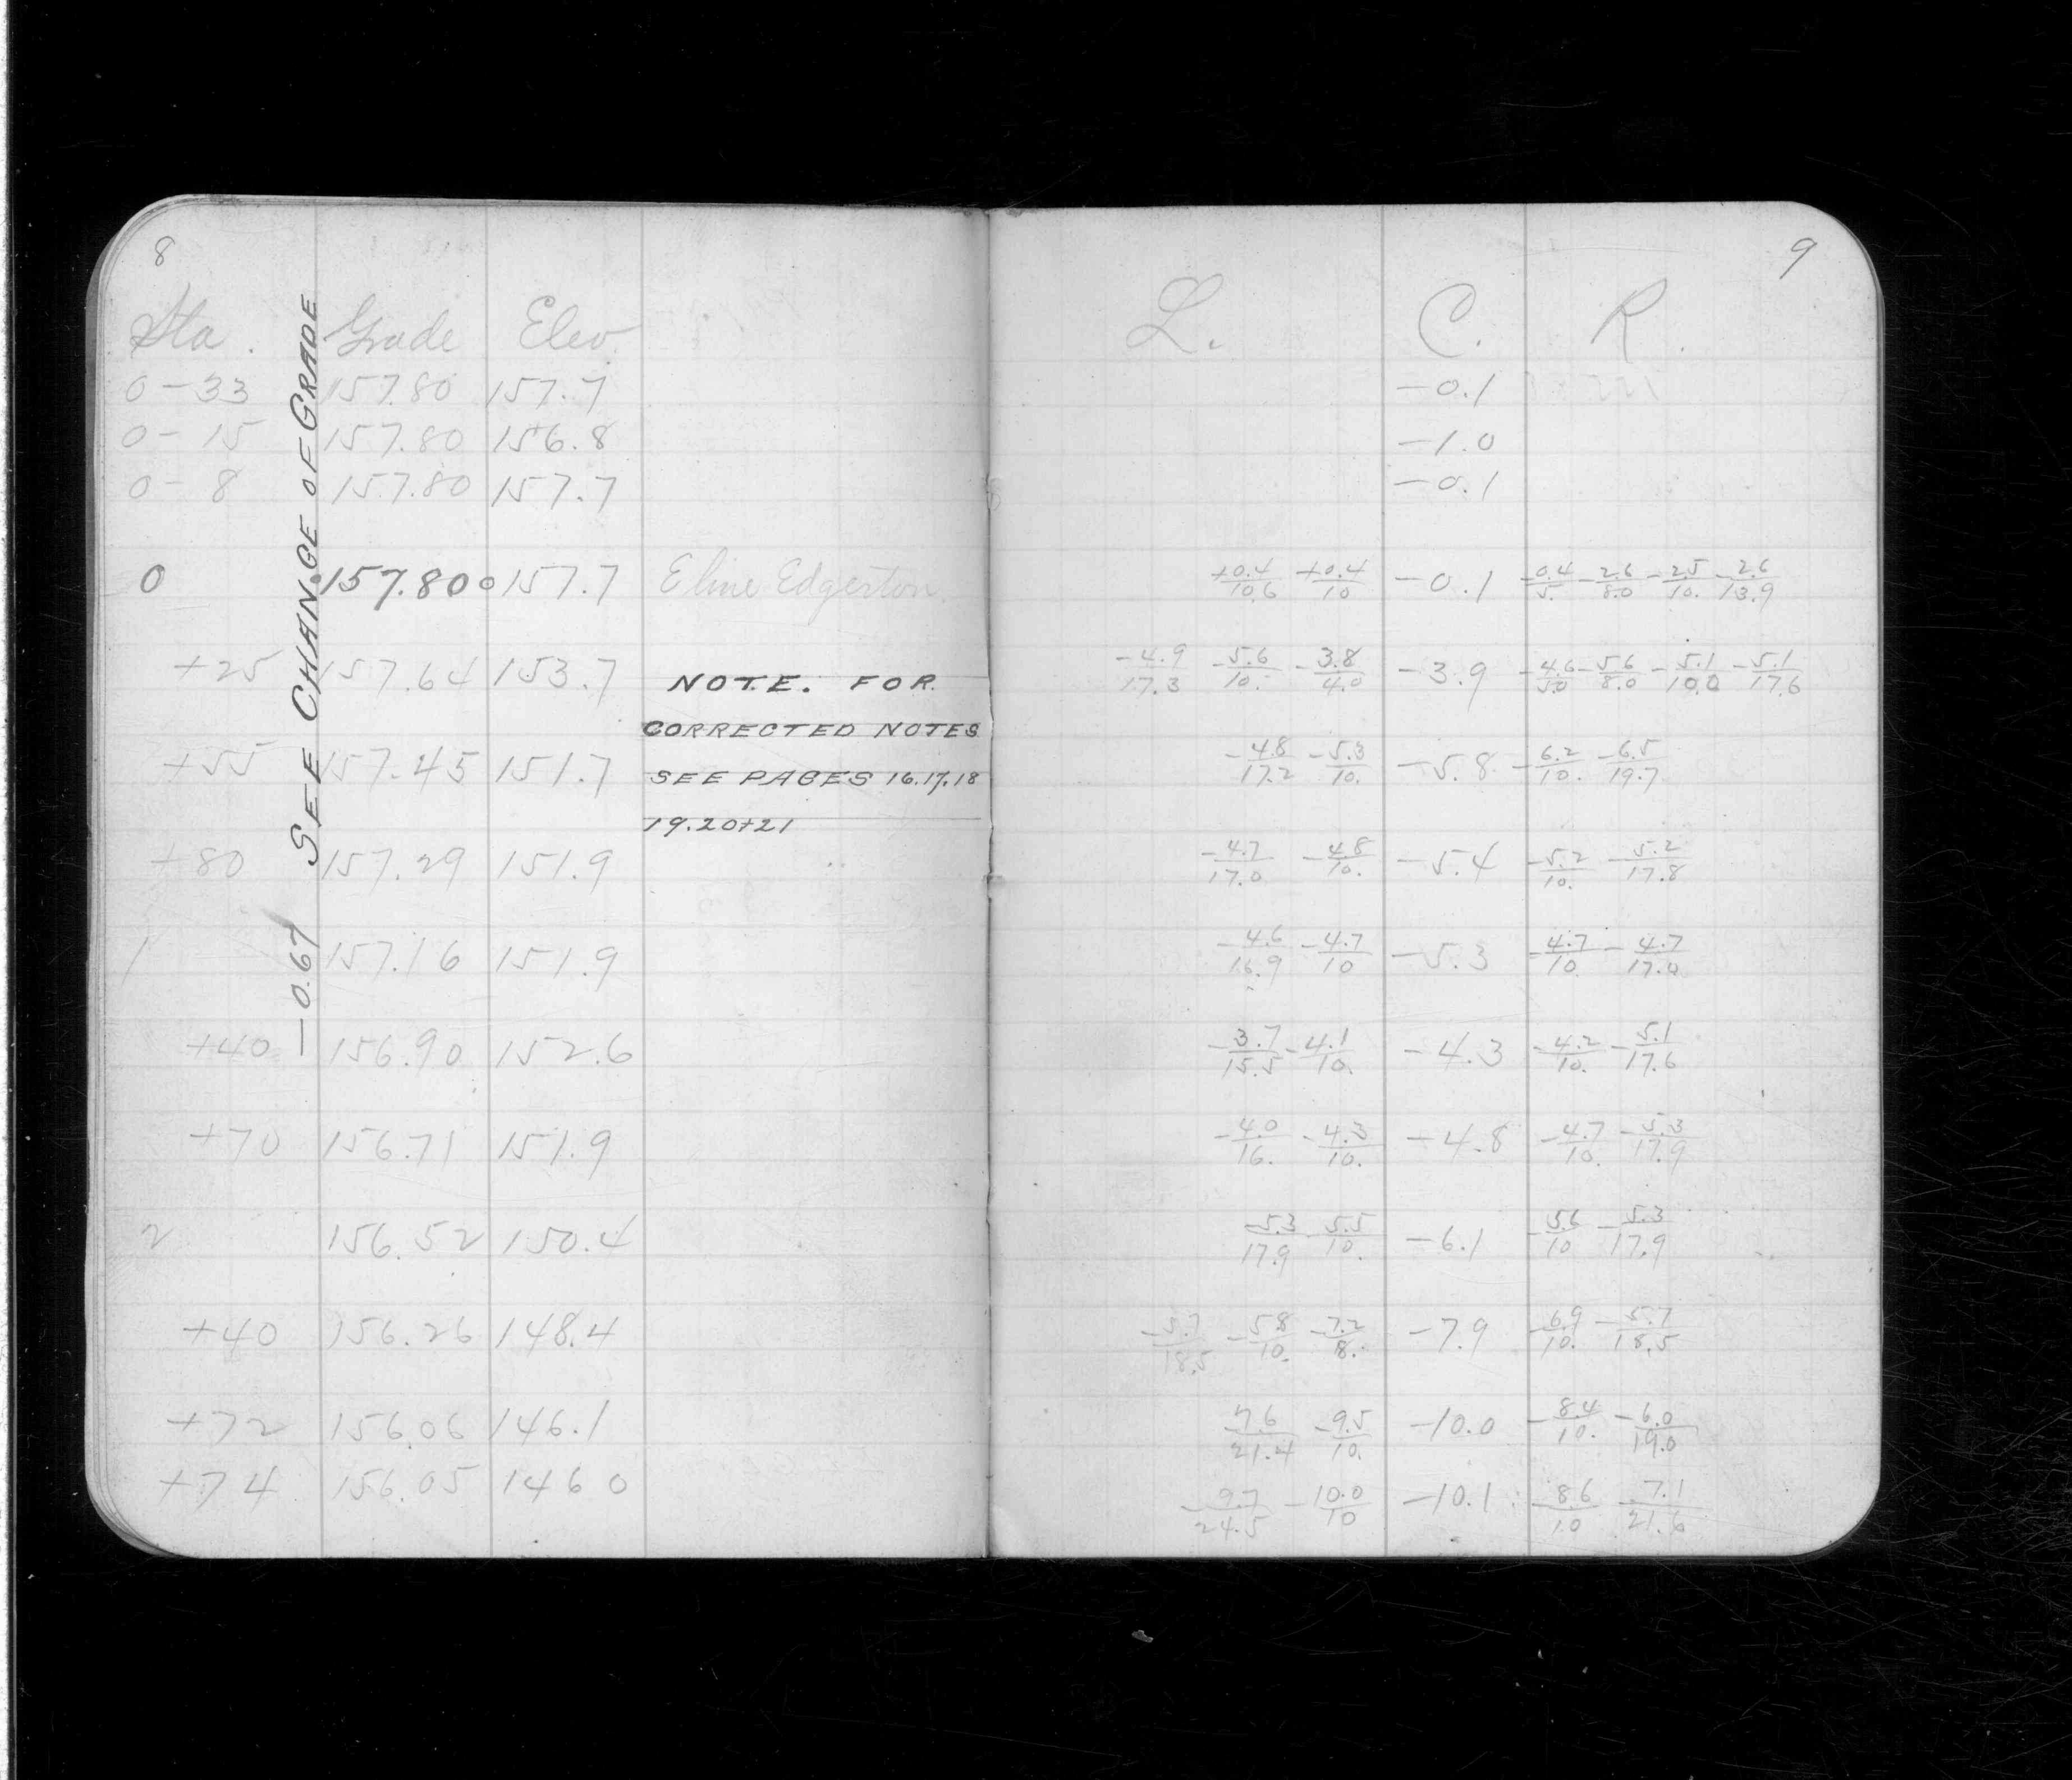 8
Sta. Grade Elev.
0-33 157.80 157.7
0-15 157.80 156.8
0-8 157.80 157.7
0 157.80 157.7 E line Edgerton
+25 157.64 153.7
+55 157.45 151.7
+80 157.29 151.9
1 157.16 151.9
+40 156.90 152.6
+70 156.71 151.9
2 156.52 150.4
+40 156.26 148.4
+72 156.06 146.1
+74 156.05 146 0
-0.67 SEE CHANGE OF GRADE
NOTE. FOR
CORRECTED NOTES
SEE PAGES 16.17.18
19.20+21
9
L. C. R.
-0.1
-1.0
-0.1
+0.4/10.6 +0.4/10 -0.1 -0.4/5. -2.6/8.0 -2.5/10. -2.6/13.9
-4.9/17.3 -5.6/10. -3.8/4.0 -3.9 -4.6/5.0 -5.6/8.0 -5.1/10.0 -5.1/17.6
-4.8/17.2 -5.3/10. -5.8 -6.2/10. -6.5/19.7
-4.7/17.0 -4.8/10. -5.4 -5.2/10. -5.2/17.8
-4.6/16.9 -4.7/10 -5.3 -4.7/10. -4.7/17.0
-3.7/15.5 -4.1/10. -4.3 -4.2/10. -5.1/17.6
-4.0/16. -4.3/10. -4.8 -4.7/10. -5.3/17.9
-5.3/17.9 -5.5/10. -6.1 -5.6/10 -5.3/17.9
-5.7/18.5 -5.8/10. -7.2/8. -7.9 -6.9/10. -5.7/18.5
-7.6/21.4 -9.5/10. -10.0 -8.4/10. -6.0/19.0
-9.7/24.5 -10.0/10 -10.1 -8.6/10 -7.1/21.6